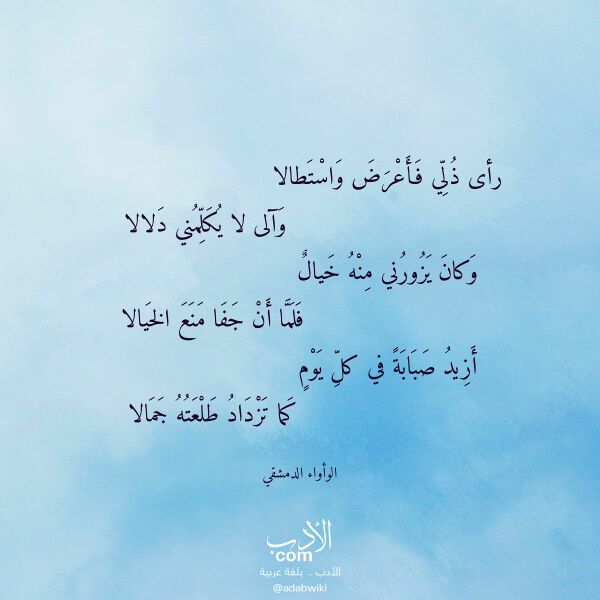 رأى ذُلِّي فَأَعْرَضَ وَاسْتَطالا
وَآلى لا يُكَلِّمُني دَلالا
وَكانَ يَزُورُني مِنْهُ خَيالٌ
فَلَمَّا أَنْ جَفَا مَنَعَ الخَيالا
أَزِيدُ صَبَابَةً في كلِّ يَوْمٍ
كَما تَزْدَادُ طَلْعَتُهُ جَمَالا
الوأواء الدمشقي
الأدب
com
الأدب .. بلغة عربية
@adabwiki